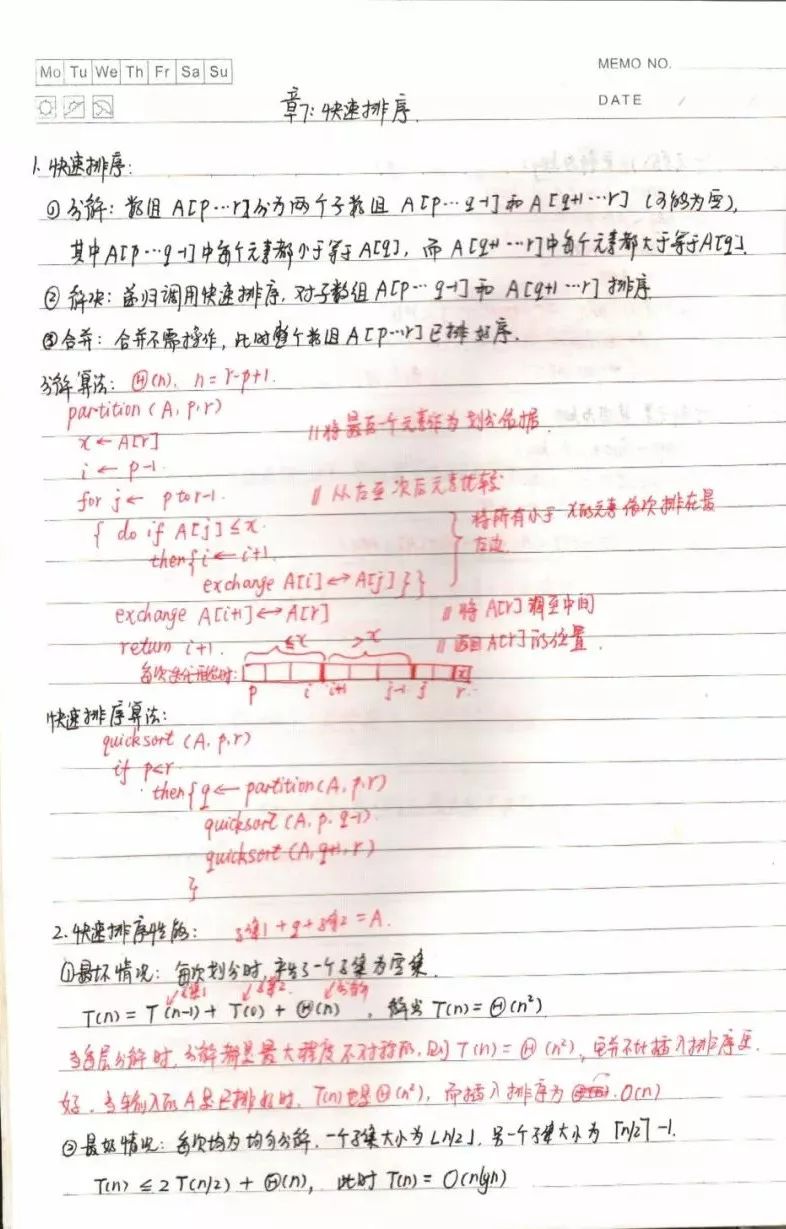 Mo Tu We Th Fr Sa Su
MEMO NO.
DATE
章7: 快速排序.
1. 快速排序:
① 分解: 数组 A[p…r]分为两个子数组 A[p…q-1]和 A[q+1…r] (可能为空),
其中A[p…q-1]中每个元素都小于等于A[q], 而 A[q+1…r]中每个元素都大于等于A[q].
② 解决: 递归调用快速排序, 对子数组A[p…q-1]和 A[q+1…r] 排序
③合并: 合并不需操作, 此时整个数组A[p…r]已排好序.
分解算法: Θ(n). n = r-p+1.
partition (A, p, r)
x ← A[r] //将最后一个元素作为划分依据
i ← p-1.
for j ← p to r-1. // 从左至次右元素比较
{ do if A[j] ≤ x. 将所有小于x的元素依次排在最
then{ i ← i+1. 左边
exchange A[i]↔A[j] } }
exchange A[i+1]↔A[r] // 将A[r]调至中间
return i+1. // 返回A[r]的位置.
≤x >x
每次迭代开始时:
x
p i i+1 j-1 j r
快速排序算法:
quicksort (A, p, r)
if p<r
then{ q ← partition(A, p, r)
quicksort (A, p, q-1)
quicksort (A, q+1, r)
}
2. 快速排序性能: 子集1 + q + 子集2 = A.
①最坏情况: 每次划分时, 产生了一个子集为空集.
子集1 子集2. 分解
T(n) = T(n-1) + T(0) + Θ(n) , 解出 T(n) = Θ(n²)
当每层分解时, 分解都是最大程度不对称的, 则 T(n) = Θ(n²), 它并不比插入排序更
好. 当输入的A是已排好时, T(n)也是Θ(n²), 而插入排序为 O(n)
②最好情况: 每次均为均匀分解, 一个子集大小为⌊n/2⌋, 另一个子集大小为⌈n/2⌉-1.
T(n) ≤ 2T(n/2) + Θ(n), 此时 T(n) = O(nlgn)